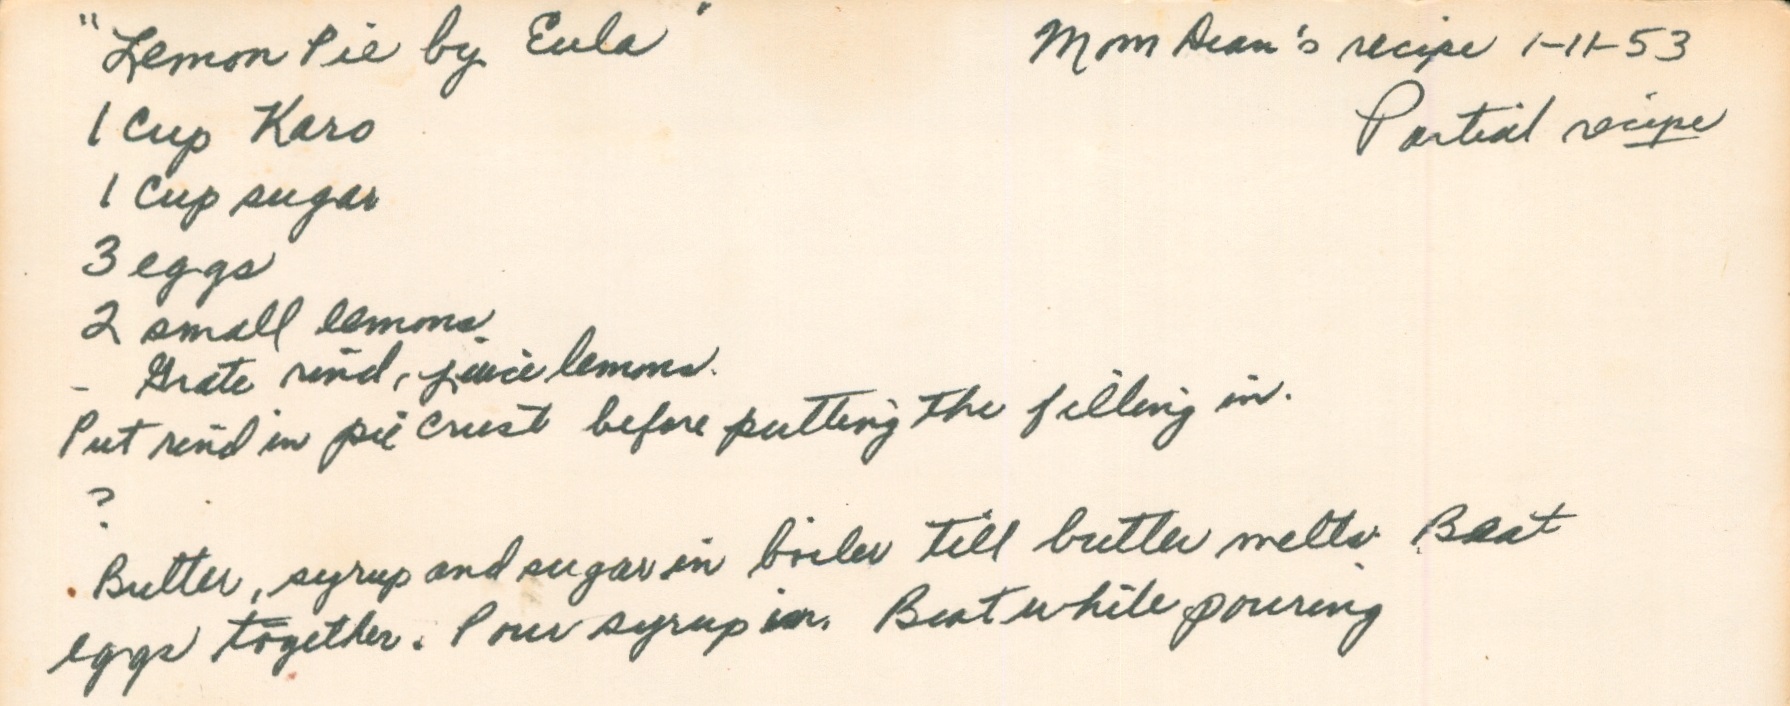 "Lemon Pie by Eula"
Mom Dean's recipe 1-11-53
Partial recipe
1 Cup Karo
1 Cup sugar
3 eggs
2 small lemons
- Grate rind, juice lemons.
Put rind in pie crust before putting the filling in.
?
Butter, syrup and sugar in boiler till butter melts. Beat
eggs together. Pour syrup in. Beat while pouring